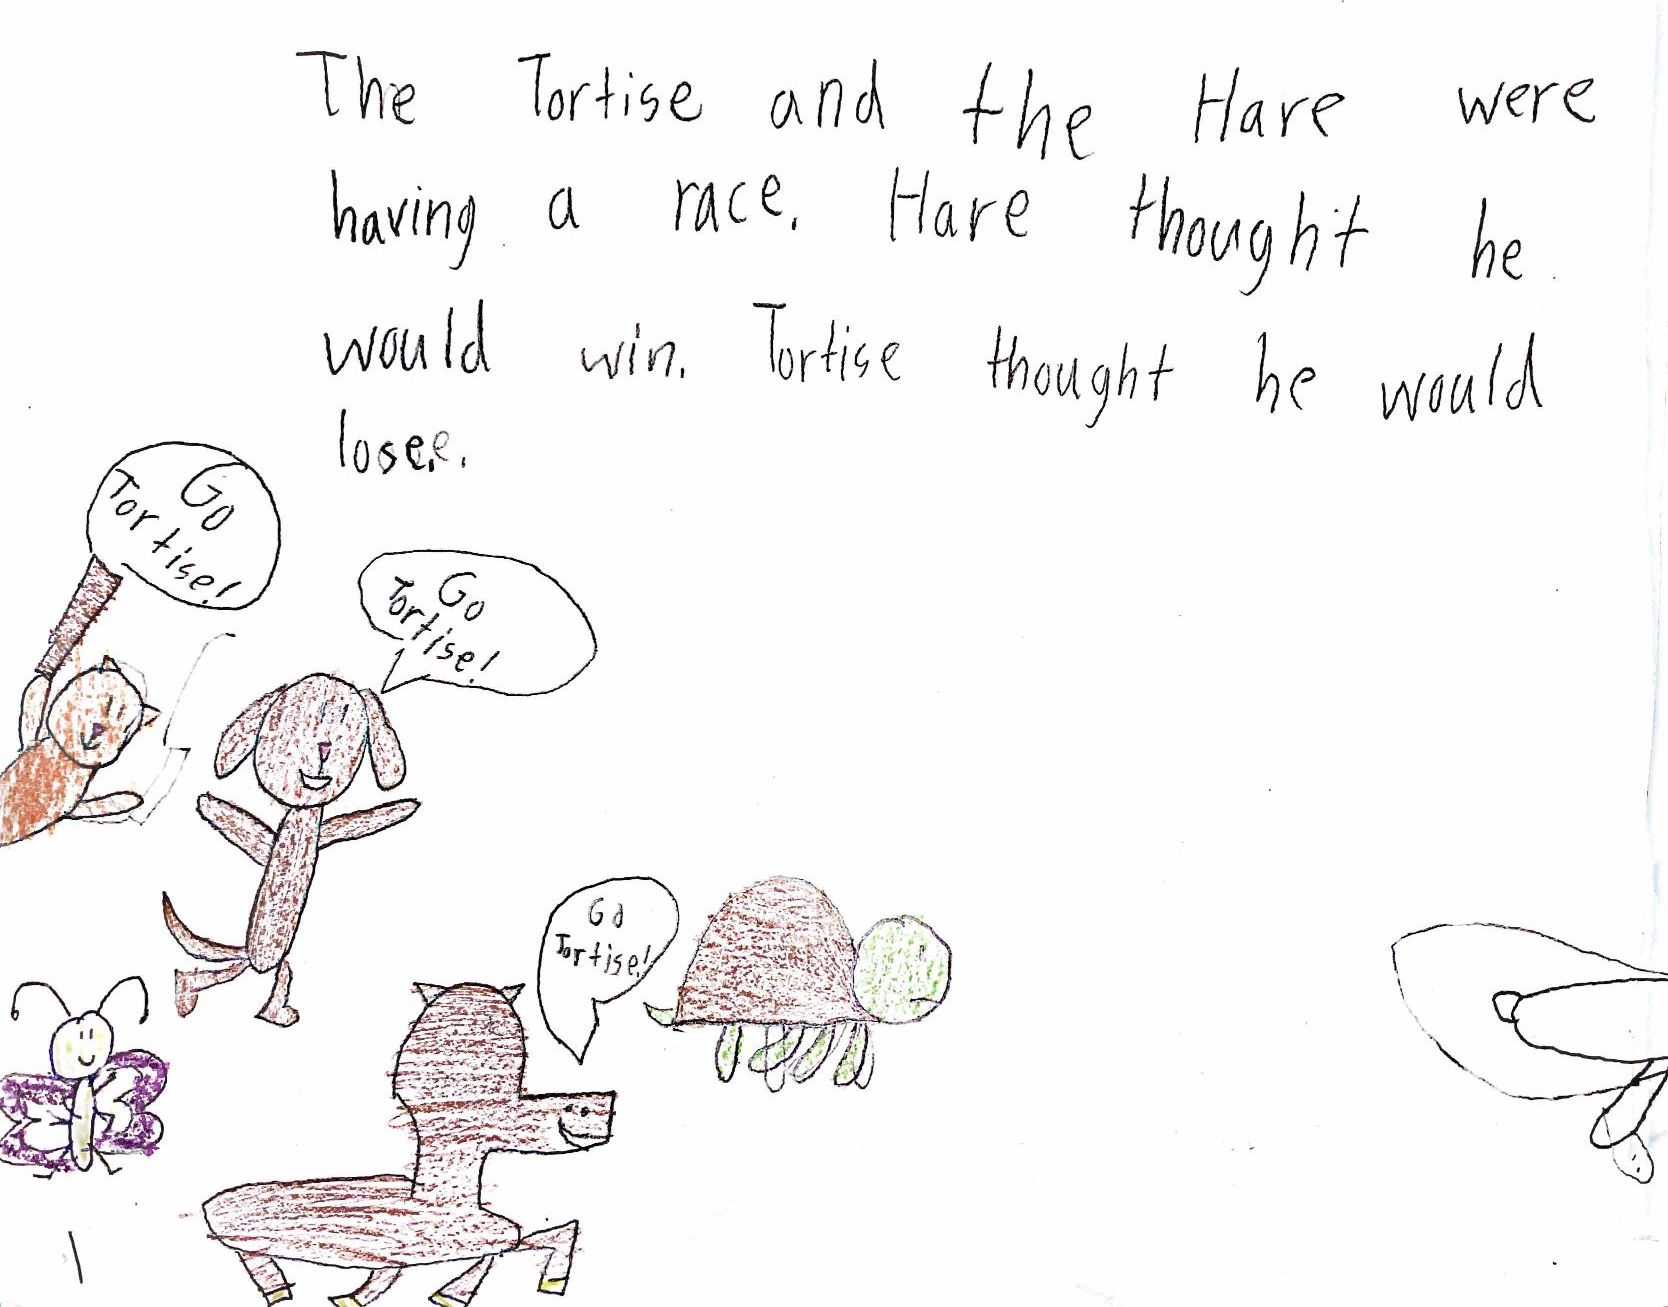 The Tortise and the Hare were
having a race. Hare thought he
would win. Tortise thought he would
lose.e.
Go
Tortise!
Go
Tortise!
Go
Tortise!
1